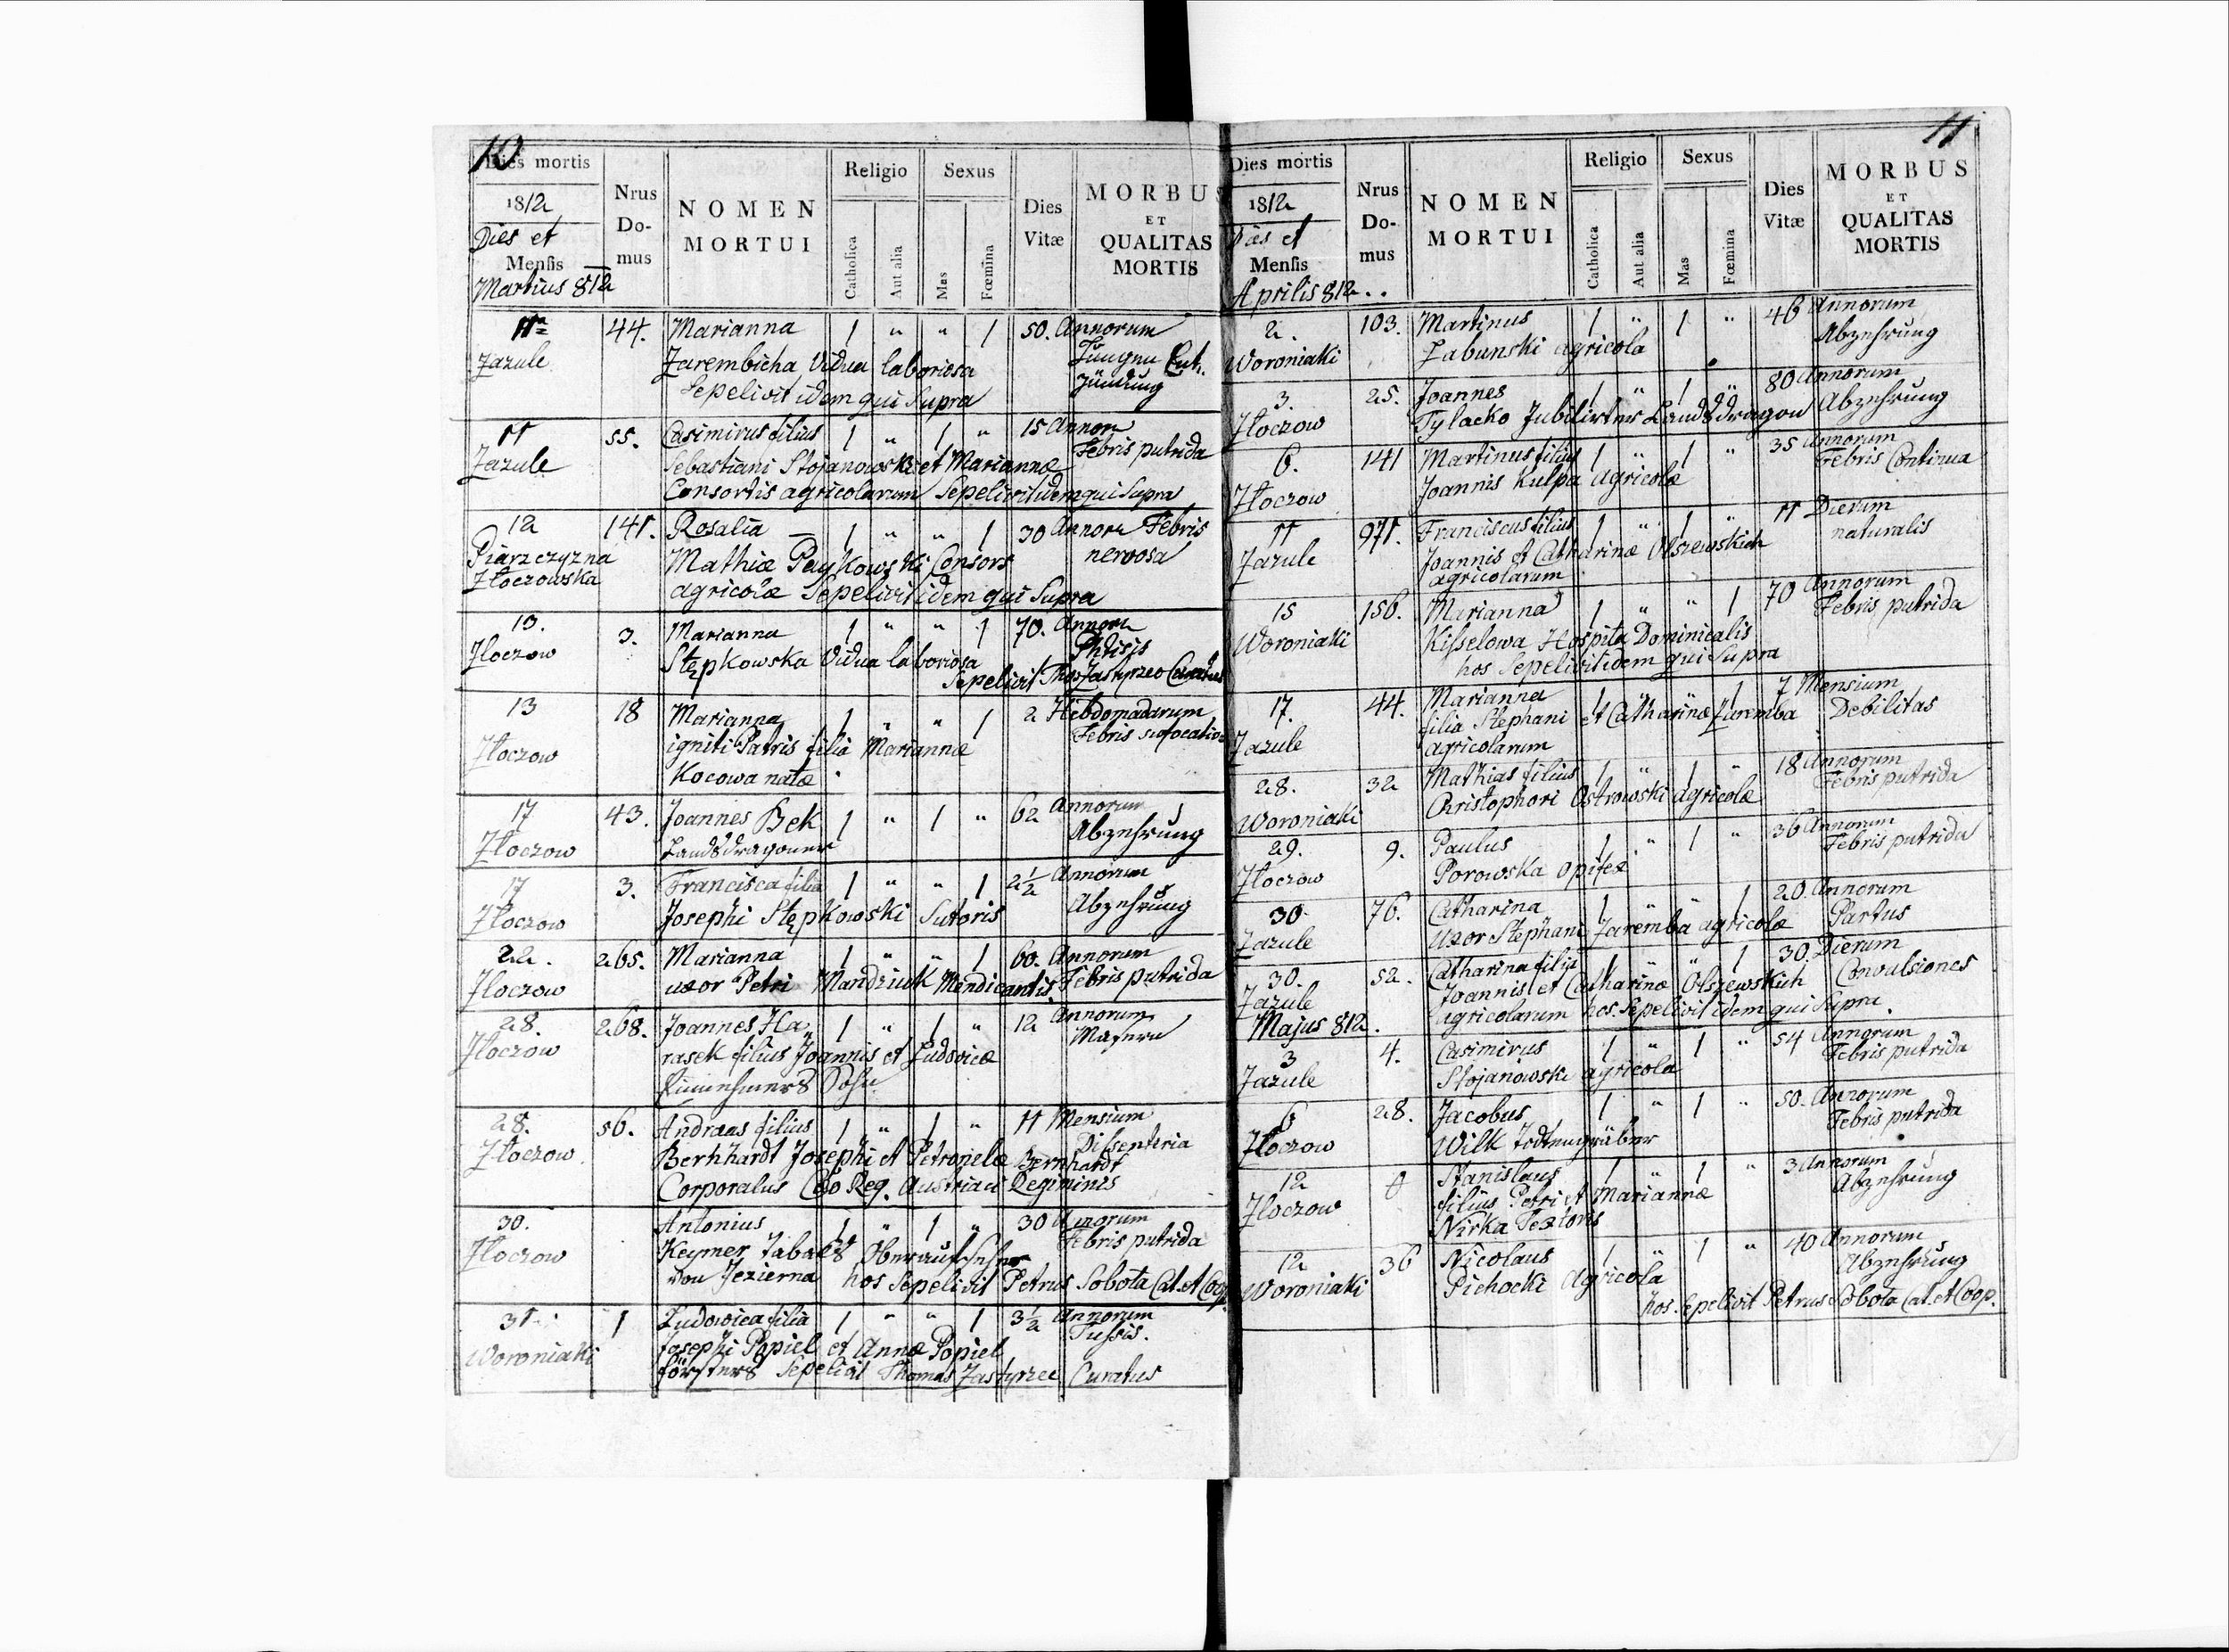 10
Dies mortis
1812
Dies et
Mensis
Martius 812
Nrus
Do-
mus
NOMEN
MORTUI
Religio
Catholica
Aut alia
Sexus
Mas
Fœmina
Dies
Vitæ
MORBUS
ET
QUALITAS
MORTIS
11a 44. Marianna 1 " " 1 50. Annorum
Zazule Zarembicha Vidua laboriosa Lungen Ent,
Sepelivit idem qui Supra zündung
11 55. Casimirus filius 1 " 1 " 15 Annor
Zazule Sebastiani Stojanowski et Mariannæ Febris putrida
Consortis agricolarum Sepelivit idem qui Supra
12 141. Rosalia — 1 " " 1 30 Annor Febris
Piarzczyzna Mathiæ Paykowski Consors nervosa
Złoczowska agricolæ Sepelivit idem qui Supra
13. 3. Marianna 1 " " 1 70. Annor
Złoczow Stępkowska Vidua laboriosa Phtisis
Sepelivit Thos Jastrzec Curatus
13 18 Marianna 1 " " 1 2 Hebdomadarum
Złoczow igniti Patris filia Mariannæ Febris sufocatio
Kocowa natæ
17 43. Joannes Bek 1 " 1 " 62 Annorum
Złoczow Landsdragoner Abzehrung
17 3. Francisca filia 1 " " 1 2½ Annorum
Złoczow Josephi Stępkowski Sutoris Abzehrung
22. 265. Marianna 1 " " 1 60. Annorum
Złoczow uxor Petri Mandziuk Mendicantis Febris putrida
28. 268. Joannes Ha, 1 " 1 " 12 Annorum
Złoczow rasek filius Joannis et Ludovicæ Masern
Einnehmers Sohn
28. 56. Andreas filius 1 " 1 " 11 Mensium
Złoczow Bernhardt Josephi et Petronelæ Bernhardt Dissenteria
Corporalus Cæo Reg. Austriaci Regiminis
30. Antonius 1 " 1 " 30 Annorum
Złoczow Keymer Tabaks Oberaufseher Febris putrida
von Jezierna hos Sepelivit Petrus Sobota Cat. et Coop
31. 1 Ludovica filia 1 " " 1 3½ Annorum
Woroniaki Josephi Popiel et Annæ Popiel Tussis.
försters Sepelivit Thomas Jastrzec Curatus
11
Dies mortis
1812
Dies et
Mensis
Aprilis 812..
Nrus
Do-
mus
NOMEN
MORTUI
Religio
Catholica
Aut alia
Sexus
Mas
Fœmina
Dies
Vitæ
MORBUS
ET
QUALITAS
MORTIS
2. 103. Martinus 1 " 1 " 46 Annorum
Woroniaki Łabunski agricola Abzehrung
3. 25. Joannes 1 " 1 " 80 Annorum
Złoczow Tylacko Jubilirter Landsdragon Abzehrung
6. 141 Martinus filius 1 " 1 " 35 Annorum
Złoczow Joannis Kulpa agricolæ Febris Continua
11 971. Franciscus filius 1 " 1 " 11 Dierum
Zazule Joannis et Catharinæ Olszewskich naturalis
agricolarum
15 156. Marianna 1 " " 1 70 Annorum
Woroniaki Kisselowa Hospita Dominicalis Febris putrida
hos Sepelivit idem qui Supra
17. 44. Marianna 1 " " 1 7 Mensium
Zazule filia Stephani et Catharinæ Zaremba Debilitas
agricolarum
28. 32 Mathias filius 1 " 1 " 18 Annorum
Woroniaki Christophori Ostrowski agricolæ Febris putrida
29. 9. Paulus 1 " 1 " 36 Annorum
Złoczow Porowska opifex Febris putrida
30. 76. Catharina 1 " " 1 20. Annorum
Zazule uxor Stephani Zaremba agricolæ Partus
30. 52. Catharina filia 1 " " 1 30. Dierum
Zazule Joannis et Catharinæ Olszewskich Convulsiones
agricolarum hos Sepelivit idem qui Supra.
Majus 812.
3 4. Casimirus 1 " 1 " 54 Annorum
Zazule Stojanowski agricola Febris putrida
6 28. Jacobus 1 " 1 " 50. Annorum
Złoczow Wilk Todtengräber Febris putrida
12 Stanislaus 1 " 1 " 3 Annorum
Złoczow filius Petri et Mariannæ Abzehrung
Nirka Textoris
12 36 Nicolaus 1 " 1 " 40 Annorum
Woroniaki Pichocki agricola Abzehrung
hos Sepelivit Petrus Sobota Cat. et Coop.